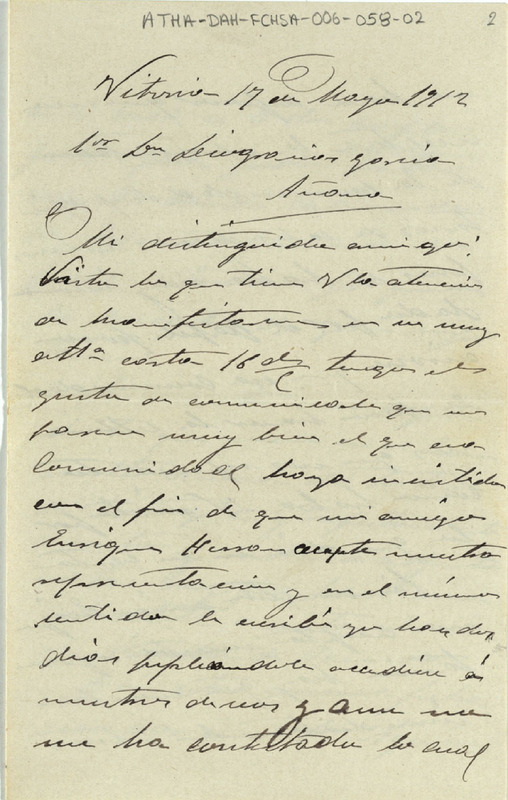 ATHA-DAH-FCHSA-006-058-02 2
Vitoria 17 de Mayo 1912
Sor Dn Deogracias Garcia
Añana
Mi distinguido amigo:
Visto lo que tiene V la atencion
de manifestarme en su muy
attª carta 16 del c/ tengo el
gusto de comunicarle que me
parece muy bien el que esa
Comunidad haya insistido
con el fin de que mi amigo
Enrique Herran acepte nuestra
representacion y en el mismo
sentido le escribí ya hace dos
dias suplicandole accediere á
nuestros deseos y aun no
me ha contestado lo cual